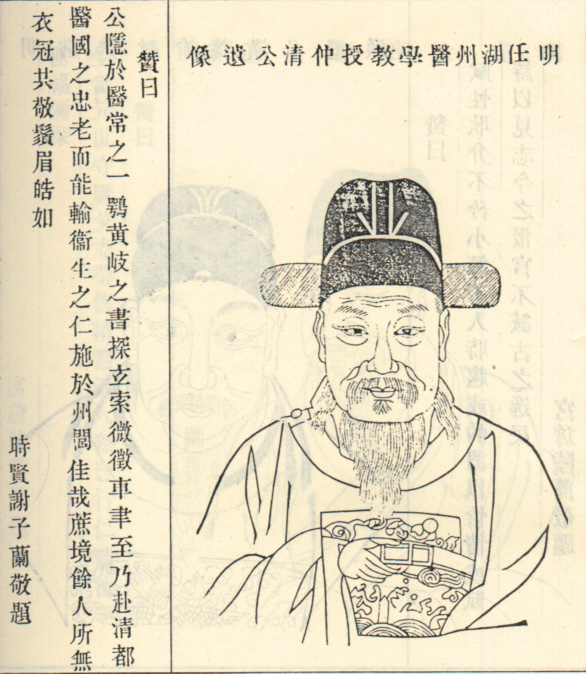 明任湖州醫學教授仲清公遺像
贊曰
公隱於醫常之一鶚黃岐之書探玄索微徵車聿至乃赴清都
醫國之忠老而能輸衞生之仁施於州閭佳哉蔗境餘人所無
衣冠共敬鬚眉皓如
時賢謝子蘭敬題